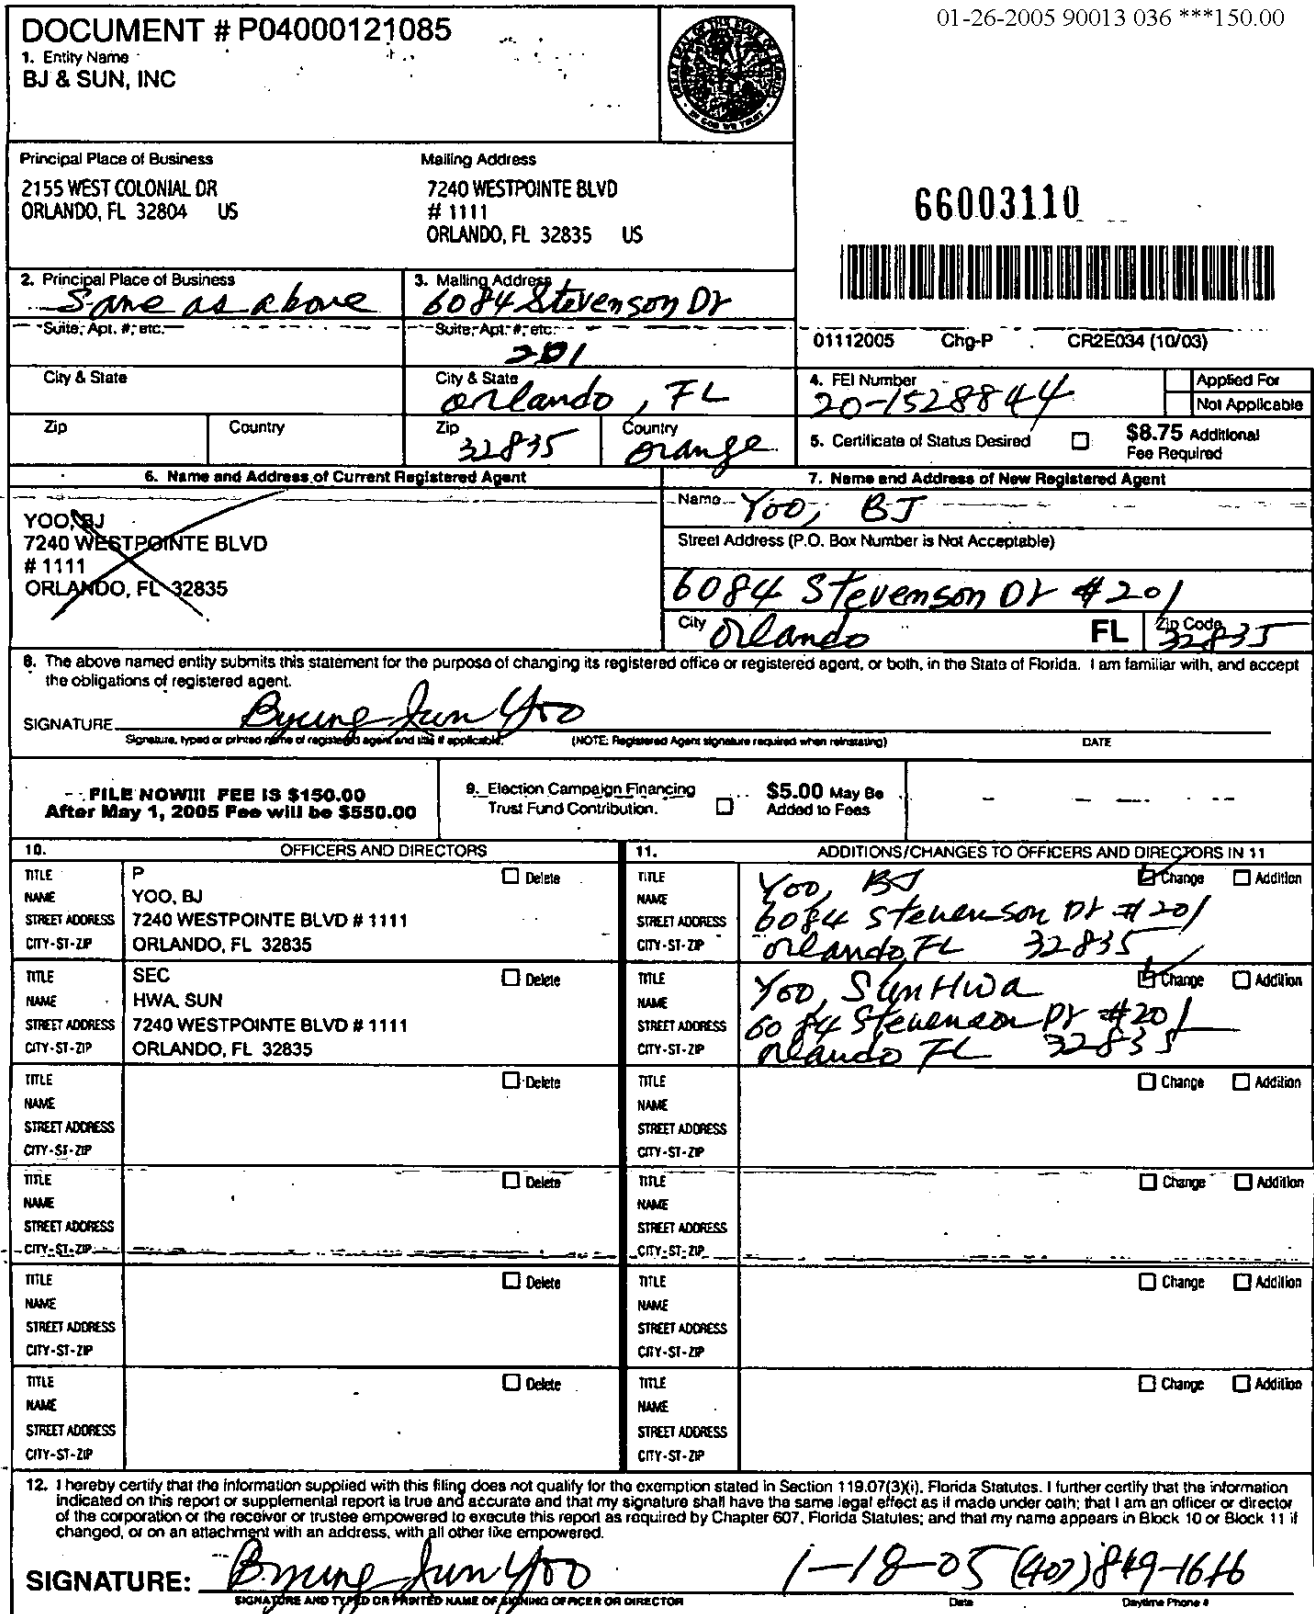 01-26-2005 90013 036 ***150.00
DOCUMENT # P04000121085
1. Entity Name
BJ & SUN, INC
Principal Place of Business
2155 WEST COLONIAL DR
ORLANDO, FL 32804 US
Mailing Address
7240 WESTPOINTE BLVD
# 1111
ORLANDO, FL 32835 US
66003110
2. Principal Place of Business
Same as above
Suite, Apt. #, etc.
City & State
Zip
Country
3. Mailing Address
6084 Stevenson Dr
Suite, Apt. #, etc.
201
City & State
Orlando, FL
Zip
32835
Country
Orange
01112005 Chg-P CR2E034 (10/03)
4. FEI Number
20-1528844
Applied For
Not Applicable
5. Certificate of Status Desired
$8.75 Additional
Fee Required
6. Name and Address of Current Registered Agent
YOO, BJ
7240 WESTPOINTE BLVD
# 1111
ORLANDO, FL 32835
7. Name and Address of New Registered Agent
Name Yoo, BJ
Street Address (P.O. Box Number is Not Acceptable)
6084 Stevenson Dr #201
City Orlando FL Zip Code 32835
8. The above named entity submits this statement for the purpose of changing its registered office or registered agent, or both, in the State of Florida. I am familiar with, and accept
the obligations of registered agent.
SIGNATURE Byung Jun Yoo
Signature, typed or printed name of registered agent and title if applicable. (NOTE: Registered Agent signature required when reinstating) DATE
FILE NOW!!! FEE IS $150.00
After May 1, 2005 Fee will be $550.00
9. Election Campaign Financing
Trust Fund Contribution.
$5.00 May Be
Added to Fees
10. OFFICERS AND DIRECTORS
TITLE P Delete
NAME YOO, BJ
STREET ADDRESS 7240 WESTPOINTE BLVD # 1111
CITY-ST-ZIP ORLANDO, FL 32835
TITLE SEC Delete
NAME HWA, SUN
STREET ADDRESS 7240 WESTPOINTE BLVD # 1111
CITY-ST-ZIP ORLANDO, FL 32835
TITLE Delete
NAME
STREET ADDRESS
CITY-ST-ZIP
TITLE Delete
NAME
STREET ADDRESS
CITY-ST-ZIP
TITLE Delete
NAME
STREET ADDRESS
CITY-ST-ZIP
TITLE Delete
NAME
STREET ADDRESS
CITY-ST-ZIP
11. ADDITIONS/CHANGES TO OFFICERS AND DIRECTORS IN 11
TITLE Change Addition
NAME Yoo, BJ
STREET ADDRESS 6084 Stevenson Dr #201
CITY-ST-ZIP Orlando FL 32835
TITLE Change Addition
NAME Yoo, Sun Hwa
STREET ADDRESS 6084 Stevenson Dr #201
CITY-ST-ZIP Orlando FL 32835
TITLE Change Addition
NAME
STREET ADDRESS
CITY-ST-ZIP
TITLE Change Addition
NAME
STREET ADDRESS
CITY-ST-ZIP
TITLE Change Addition
NAME
STREET ADDRESS
CITY-ST-ZIP
TITLE Change Addition
NAME
STREET ADDRESS
CITY-ST-ZIP
12. I hereby certify that the information supplied with this filing does not qualify for the exemption stated in Section 119.07(3)(i), Florida Statutes. I further certify that the information
indicated on this report or supplemental report is true and accurate and that my signature shall have the same legal effect as if made under oath; that I am an officer or director
of the corporation or the receiver or trustee empowered to execute this report as required by Chapter 607, Florida Statutes; and that my name appears in Block 10 or Block 11 if
changed, or on an attachment with an address, with all other like empowered.
SIGNATURE: Byung Jun Yoo 1-18-05 (407)849-1616
SIGNATURE AND TYPED OR PRINTED NAME OF SIGNING OFFICER OR DIRECTOR Date Daytime Phone #